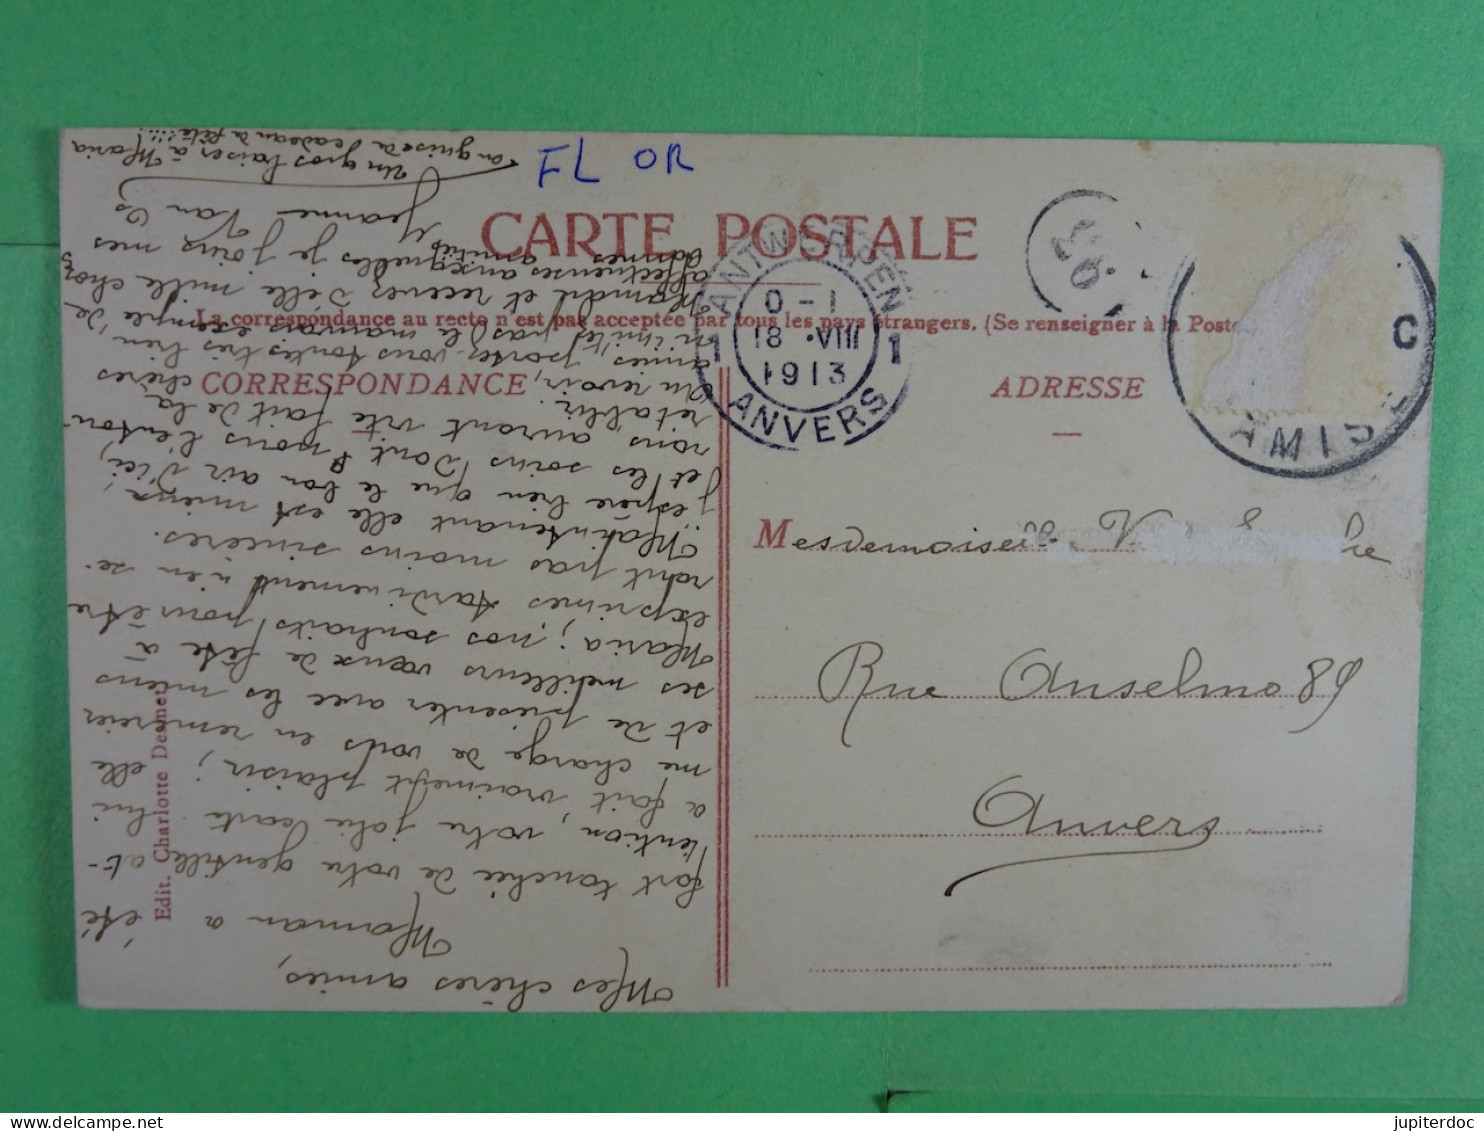 FL OR
CARTE POSTALE
La correspondance au recto n'est pas acceptée par tous les pays étrangers. (Se renseigner à la Poste
CORRESPONDANCE
ADRESSE
ANTWERPEN
0-1
18 .VIII
1913
1 1
ANVERS
C
AMIS
Mesdemoiselles V
Rue Anselmo 89
Anvers
Edit. Charlotte Desmet
Mes chères amies,
Maman a été
fort touchée de votre gentille at-
tention, votre jolie carte lui
a fait vraiment plaisir; elle
me charge de vous en remercier
et de présenter avec les miens
ses meilleurs vœux de fête à
Maria; nos souhaits pour être
exprimés tardivement n'en se-
ront pas moins sincères.
Maintenant elle est mieux,
j'espère bien que le bon air d'ici,
et les soins dont nous l'entou-
rons auront vite fait de la
rétablir.
Au revoir, mes chères
amies, portez-vous toutes très bien
n'imitez pas le mauvais exemple de
Mamatt et recevez d'elle mille choses
affectueuses auxquelles je joins mes
bonnes amitiés
Jeanne Van
Un gros baiser à Maria
en guise de cadeau de fête!!!!
jupiterdoc